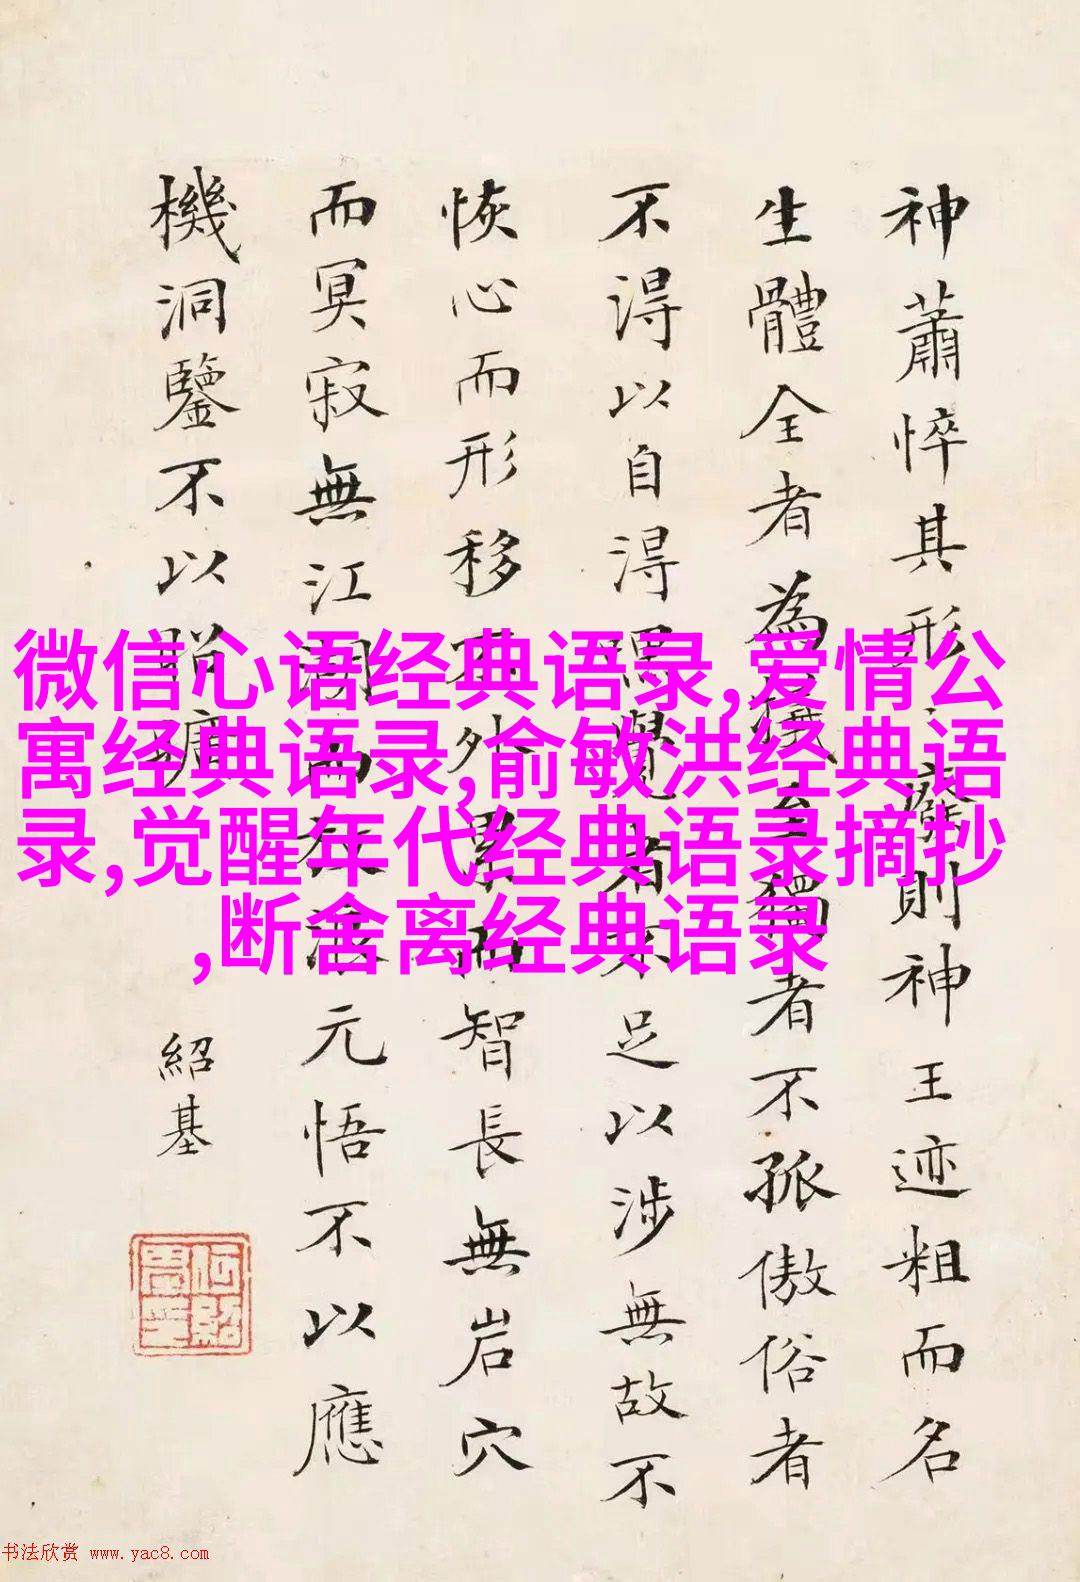 神蕭悴其形形廢則神王迹粗而名
生體全者為犧至獨者不孤傲俗者
不得以自得得覺者不足以涉無故不
恢心而形移不外累而智長無岩穴
而冥寂無江湖而放浪元悟不以應
機洞鑒不以昭曠
紹基
微信心语经典语录,爱情公
寓经典语录,俞敏洪经典语
录,觉醒年代经典语录摘抄
,断舍离经典语录
书法欣赏 www.yac8.com